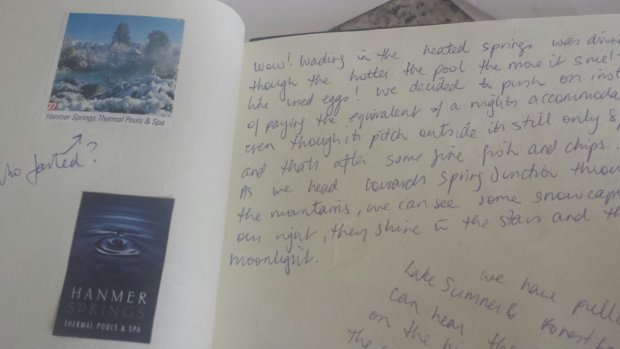 Hanmer Springs Thermal Pools & Spa
who farted?
HANMER
SPRINGS
THERMAL POOLS & SPA
Wow! Wading in the heated springs was divine
though the hotter the pool the more it smelt
like used eggs! We decided to push on inst
of paying the equivalent of a nights accommoda
even though its pitch outside its still only 8p
and thats after some fine fish and chips.
As we head towards Spring Junction throu
the mountains, we can see some snowcapp
our right, they shine in the stars and th
moonlight.
we have pulle
Lake Sumner Forest
can hear the
on the
The